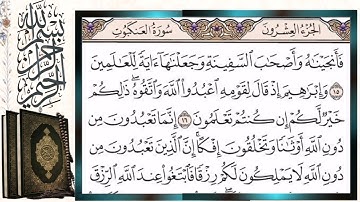 بسم الله الرحمن الرحيم
الجزء العشرون
سورة العنكبوت
فَأَنجَيْنَٰهُ وَأَصْحَٰبَ ٱلسَّفِينَةِ وَجَعَلْنَٰهَآ ءَايَةً لِّلْعَٰلَمِينَ
١٥ وَإِبْرَٰهِيمَ إِذْ قَالَ لِقَوْمِهِ ٱعْبُدُوا۟ ٱللَّهَ وَٱتَّقُوهُ ۖ ذَٰلِكُمْ
خَيْرٌ لَّكُمْ إِن كُنتُمْ تَعْلَمُونَ ١٦ إِنَّمَا تَعْبُدُونَ مِن
دُونِ ٱللَّهِ أَوْثَٰنًا وَتَخْلُقُونَ إِفْكًا ۚ إِنَّ ٱلَّذِينَ تَعْبُدُونَ مِن
دُونِ ٱللَّهِ لَا يَمْلِكُونَ لَكُمْ رِزْقًا فَٱبْتَغُوا۟ عِندَ ٱللَّهِ ٱلرِّزْقَ